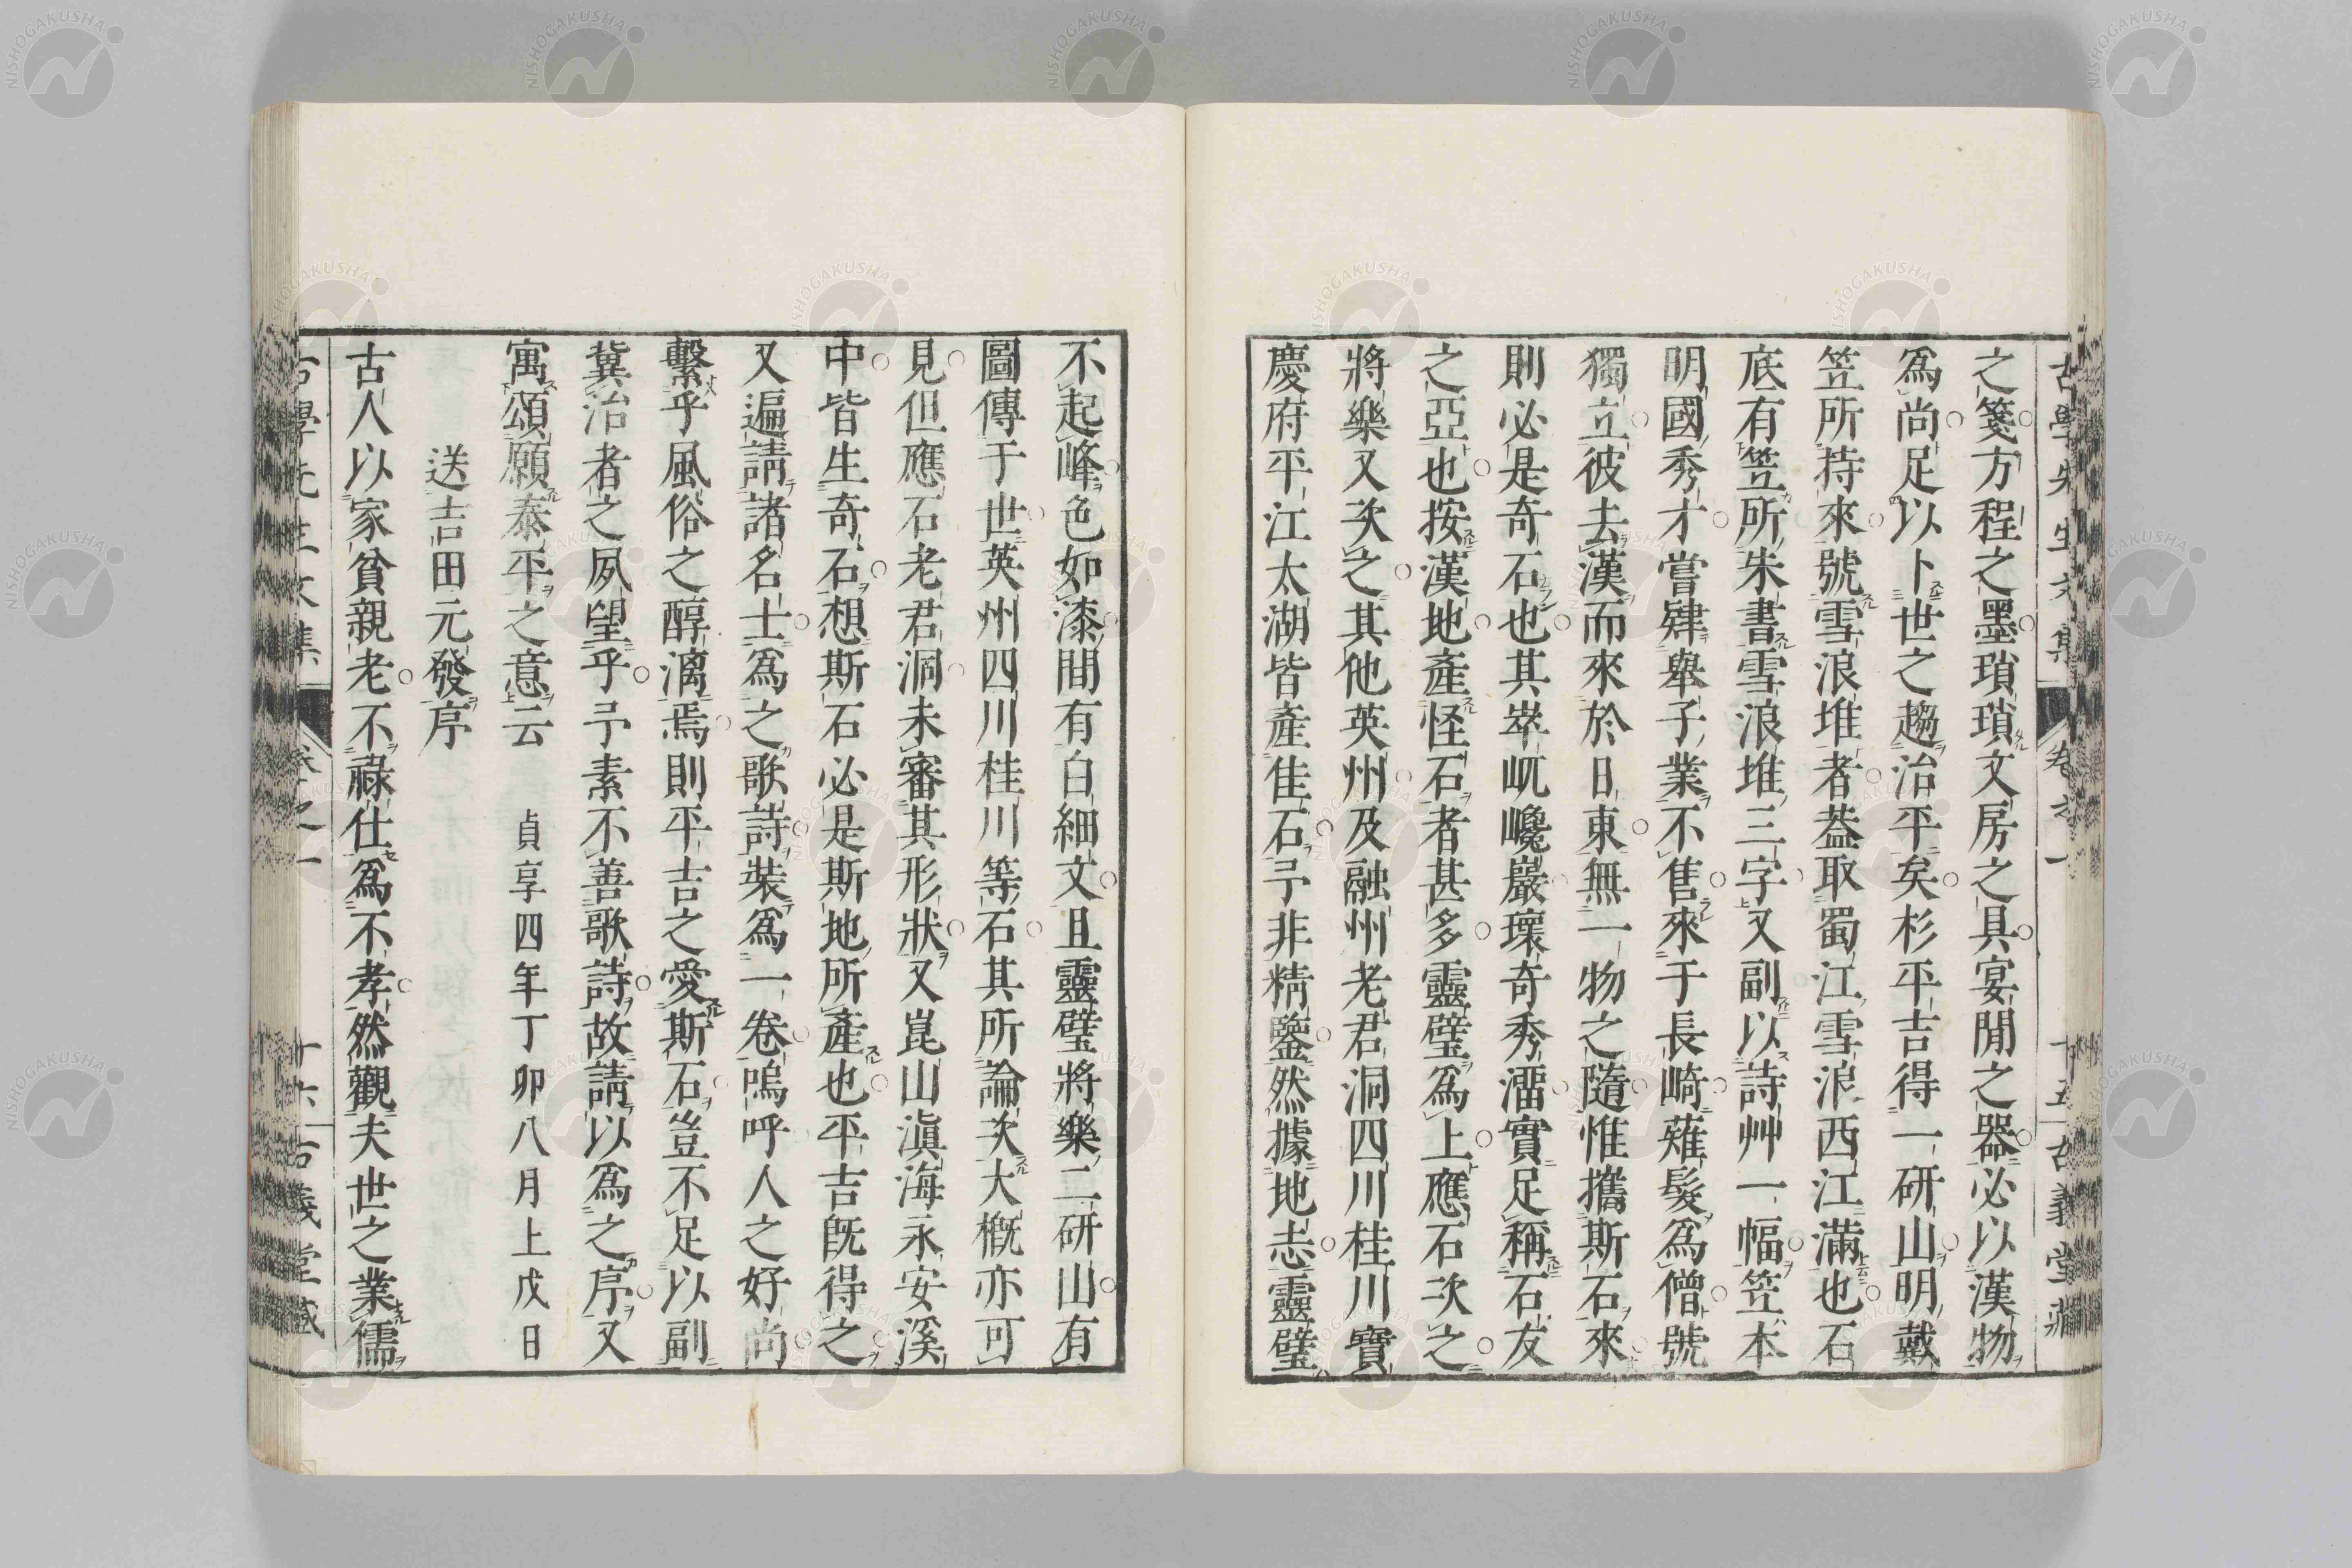 古學先生文集 卷之一 十五 古義堂藏
之箋方程之墨瑣瑣文房之具宴閒之器必以漢物
爲尚足以卜世之趨治平矣杉平吉得一研山明戴
笠所持來號雪浪堆者葢取蜀江雪浪西江滿也石
底有笠所朱書雪浪堆三字又副以詩艸一幅笠本
明國秀才嘗肄舉子業不售來于長崎薙髮爲僧號
獨立彼去漢而來於日東無一物之隨惟攜斯石來
則必是奇石也其崒屼巉巖瓌奇秀溜實足稱石友
之亞也按漢地產怪石者甚多靈璧爲上應石次之
將樂又次之其他英州及融州老君洞四川桂川寶
慶府平江太湖皆產佳石予非精鑒然據地志靈璧
不起峰色如漆間有白細文且靈璧將樂二研山有
圖傳于世英州四川桂川等石其所論次大概亦可
見但應石老君洞未審其形狀又崑山滇海永安溪
中皆生奇石想斯石必是斯地所產也平吉既得之
又遍請諸名士爲之歌詩裝爲一卷嗚呼人之好尚
繫乎風俗之醇漓焉則平吉之愛斯石豈不足以副
冀治者之夙望乎予素不善歌詩故請以爲之序又
寓頌願泰平之意云 貞享四年丁卯八月上戊日
送吉田元發序
古人以家貧親老不祿仕爲不孝然觀夫世之業儒
古學先生文集 卷之一 十六 古義堂藏